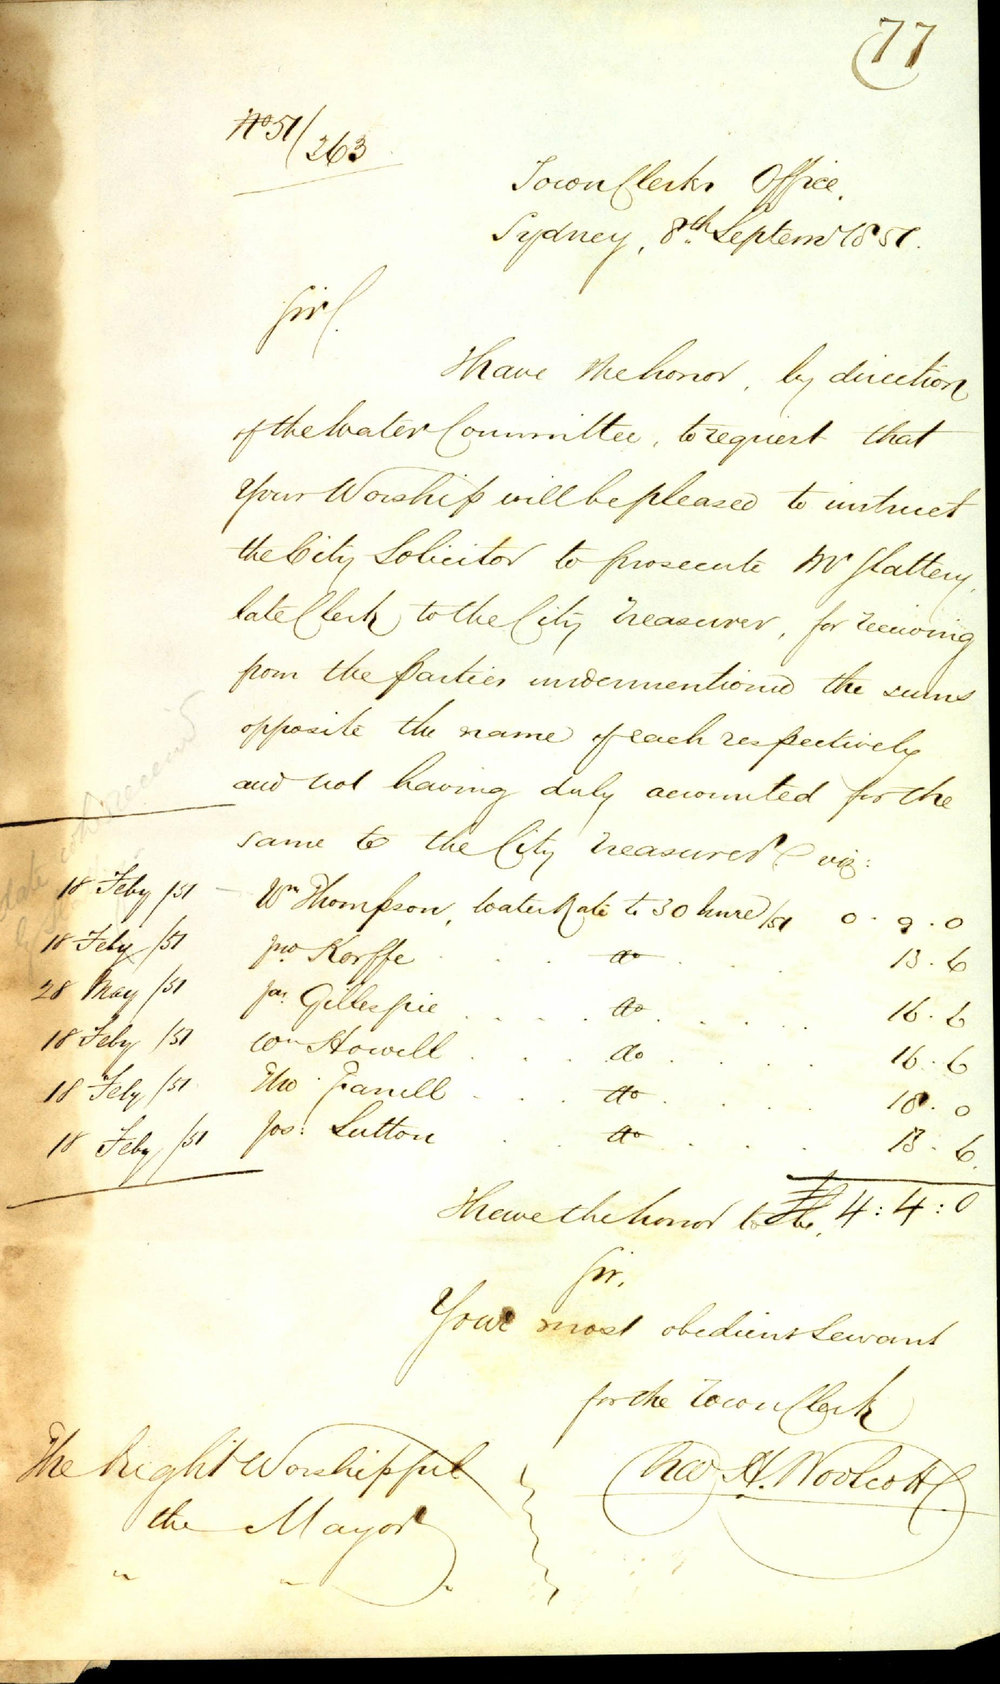 77
No 51/263
Town Clerks Office,
Sydney, 8th Septemr 1851.
Sir,
I have the honor, by direction
of the Water Committee, to request that
Your Worship will be pleased to instruct
the City Solicitor to prosecute Mr Slattery,
late Clerk to the City Treasurer, for receiving
from the parties undermentioned the sums
opposite the name of each respectively
and not having duly accounted for the
same to the City Treasurer viz:
date when received
18 Feby /51 - Wm Thompson, Water Rate to 30 June /51 0 . 9 . 0
18 Feby /51 Jno Korffe . . . do . . 13 . 6
28 May /51 Jas Gillespie . . . . do . . . . 16 . 6
18 Feby /51 Wm Howell . . . do . . . 16 . 6
18 Feby /51 Tho Farrell . . . do . . . 18 . 0
18 Feby /51 Jos: Sutton . . do . . . 13 . 6
£ 4 : 4 : 0
I have the honor to be,
Sir,
Your most obedient Servant
for the Town Clerk
Chas H. Woolcott
The Right Worshipful
the Mayor
" " "